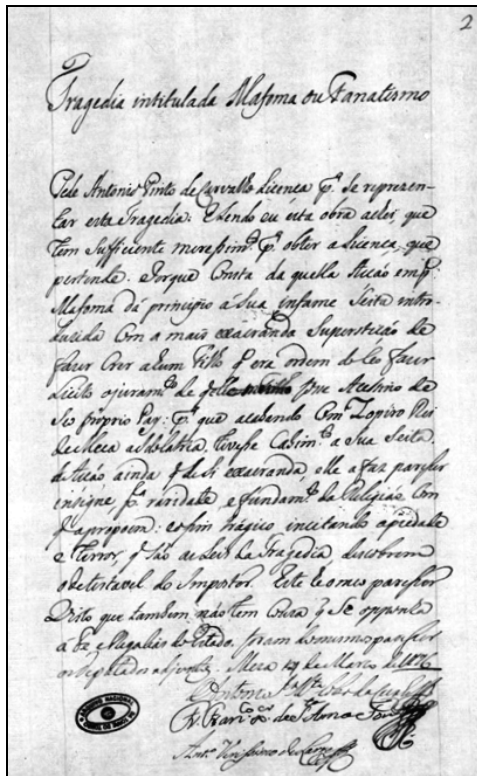 2
Tragedia intitulada Mafoma ou Fanatismo
Pede Antonio Pinto de Carvalho Licença pª. se represen-
tar esta Tragedia: E Lendo eu esta obra achei, que
tem sufficiente meressimtº. pª. obter a Licença, que
pertende. Porque Consta da quella Acção em q̃
Mafoma dá principio á Sua infame Seita intro-
duzida Com a mais execranda Superstição de
fazer Crer a hum filho q̃ era ordem do Ceo fazer
Licito o juramtº. de ser Acecino de
Seo proprio Pay: pª. que acabando Com Zopiro Rei
de Meca a Idolatria, tivesse Cabimtº. a Sua Seita.
Acção, ainda q̃ de Si execranda, elle a faz paresser
insigne, pª. raridade e fundamtº. da Religião Com
q̃ a propoem: e o fim trágico incitando a piedade
e terror, q̃ são as Leis da Tragedia descobrem
o detestavel do Impostor. Este he o meo paresser
Digo que tambem não tem Couza q̃ Se opponha
á Fé e Regalias do Estado. foram do mesmo paresser
os Deputados adjuntos. Meza 29 de Março de 1776
Antonio
Fr. Francº. de Sª. Anna
Antº.
ARQUIVO NACIONAL